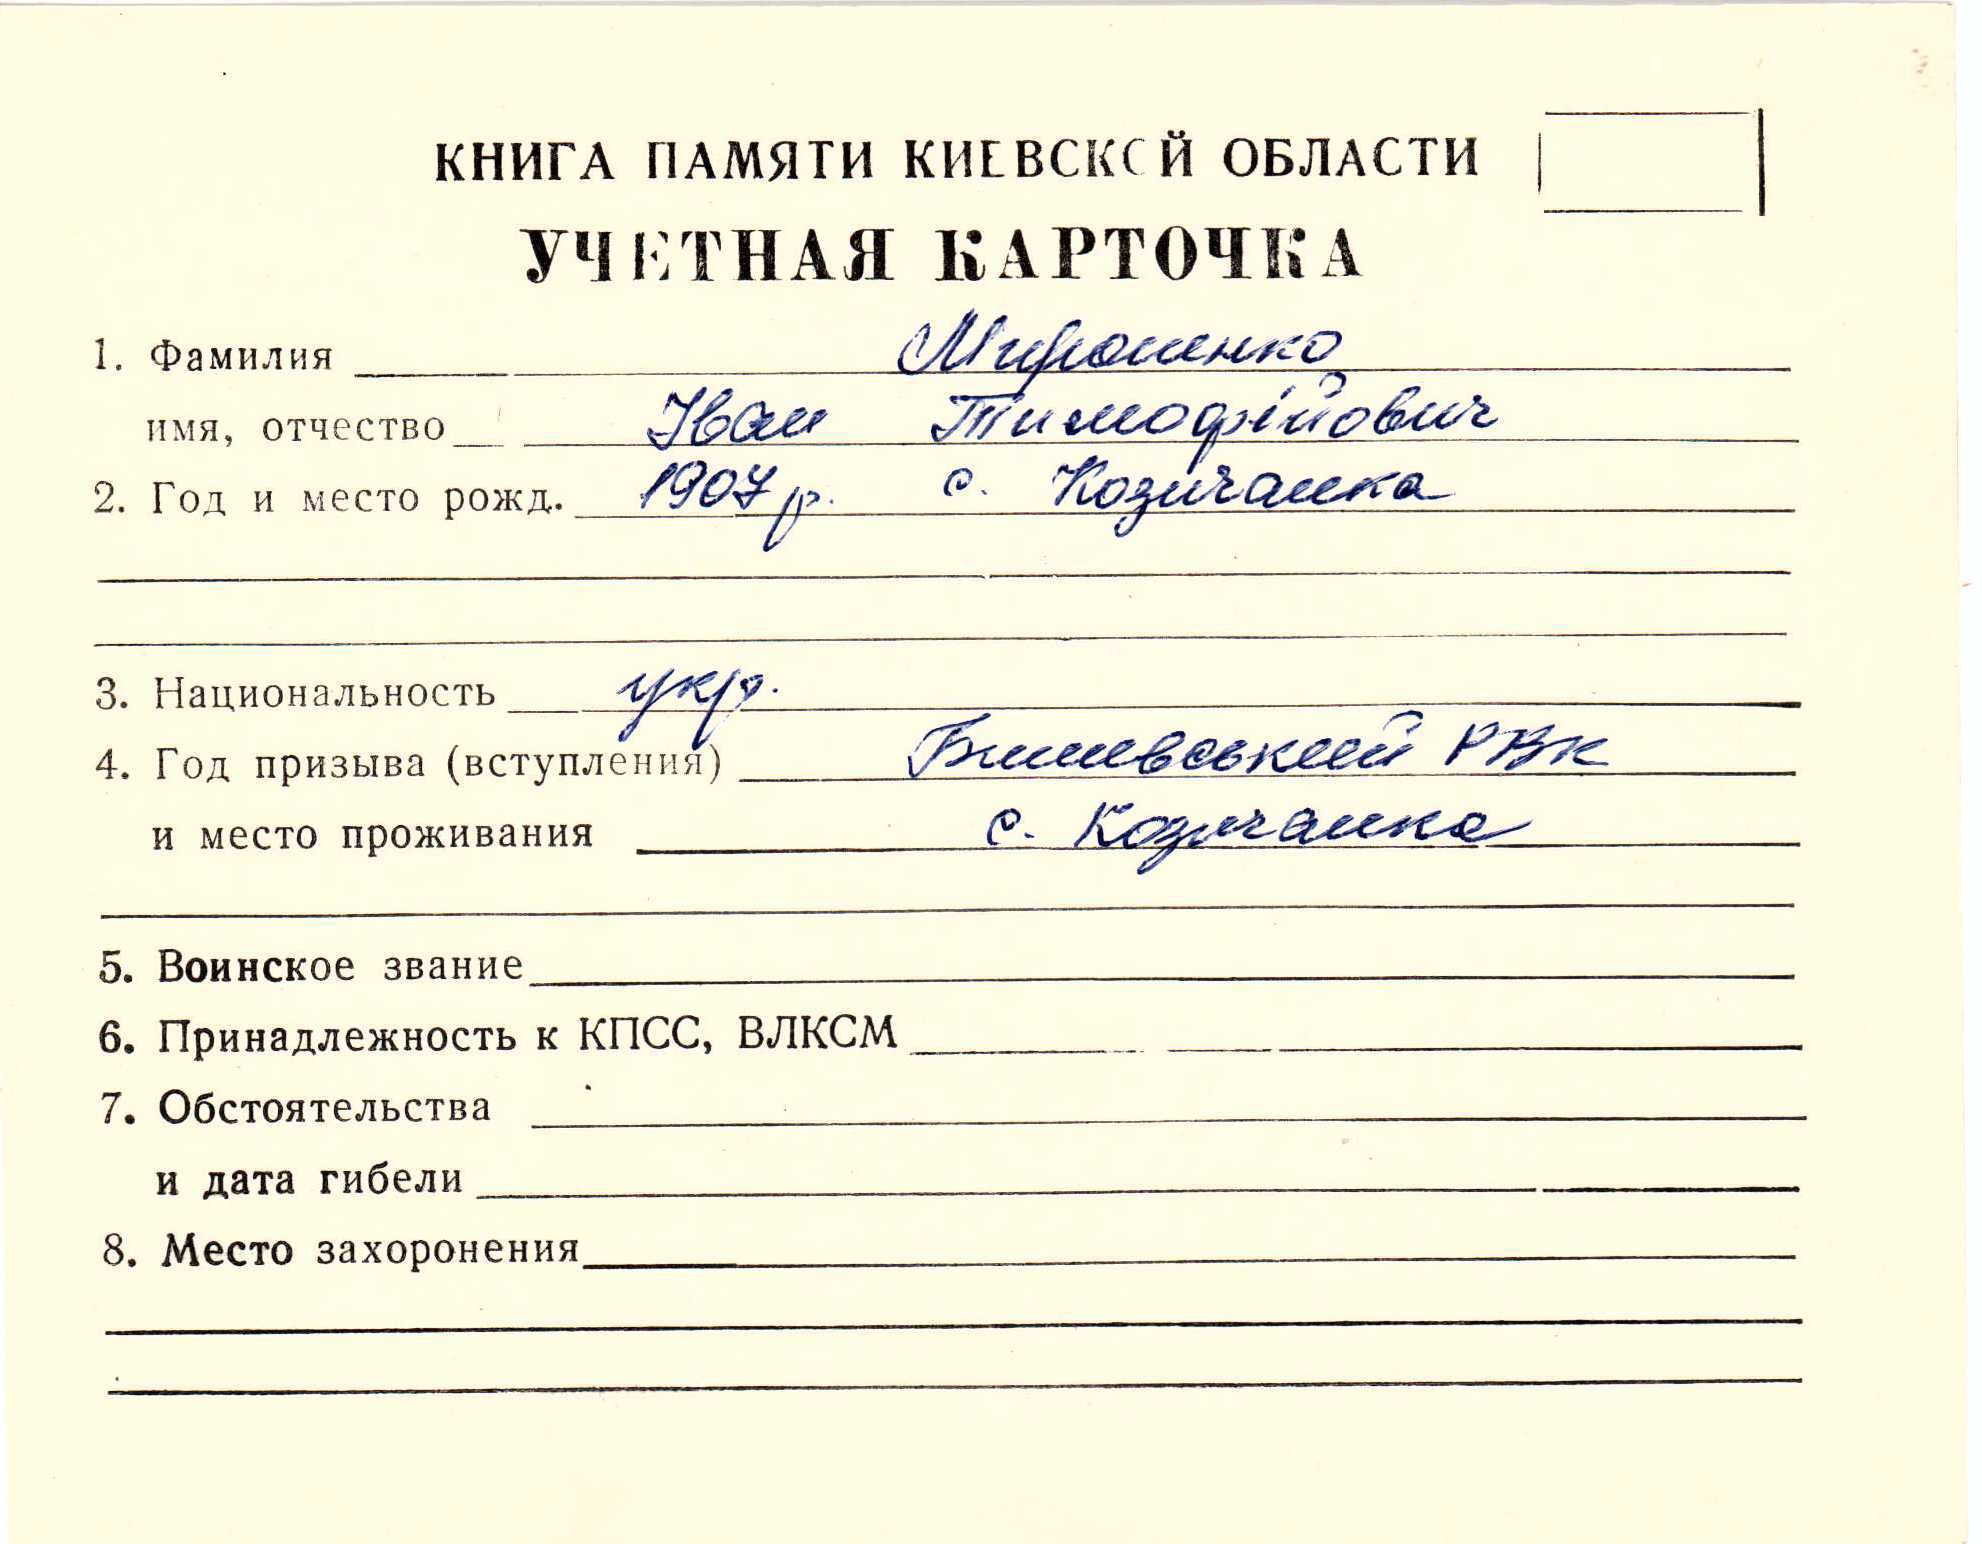 КНИГА ПАМЯТИ КИЕВСКОЙ ОБЛАСТИ
УЧЕТНАЯ КАРТОЧКА
1. Фамилия Мироненко
имя, отчество Іван Тимофійович
2. Год и место рожд. 1907 р. с. Козичанка
3. Национальность укр.
4. Год призыва (вступления) Бишевський РВК
и место проживания с. Козичанка
5. Воинское звание
6. Принадлежность к КПСС, ВЛКСМ
7. Обстоятельства
и дата гибели
8. Место захоронения